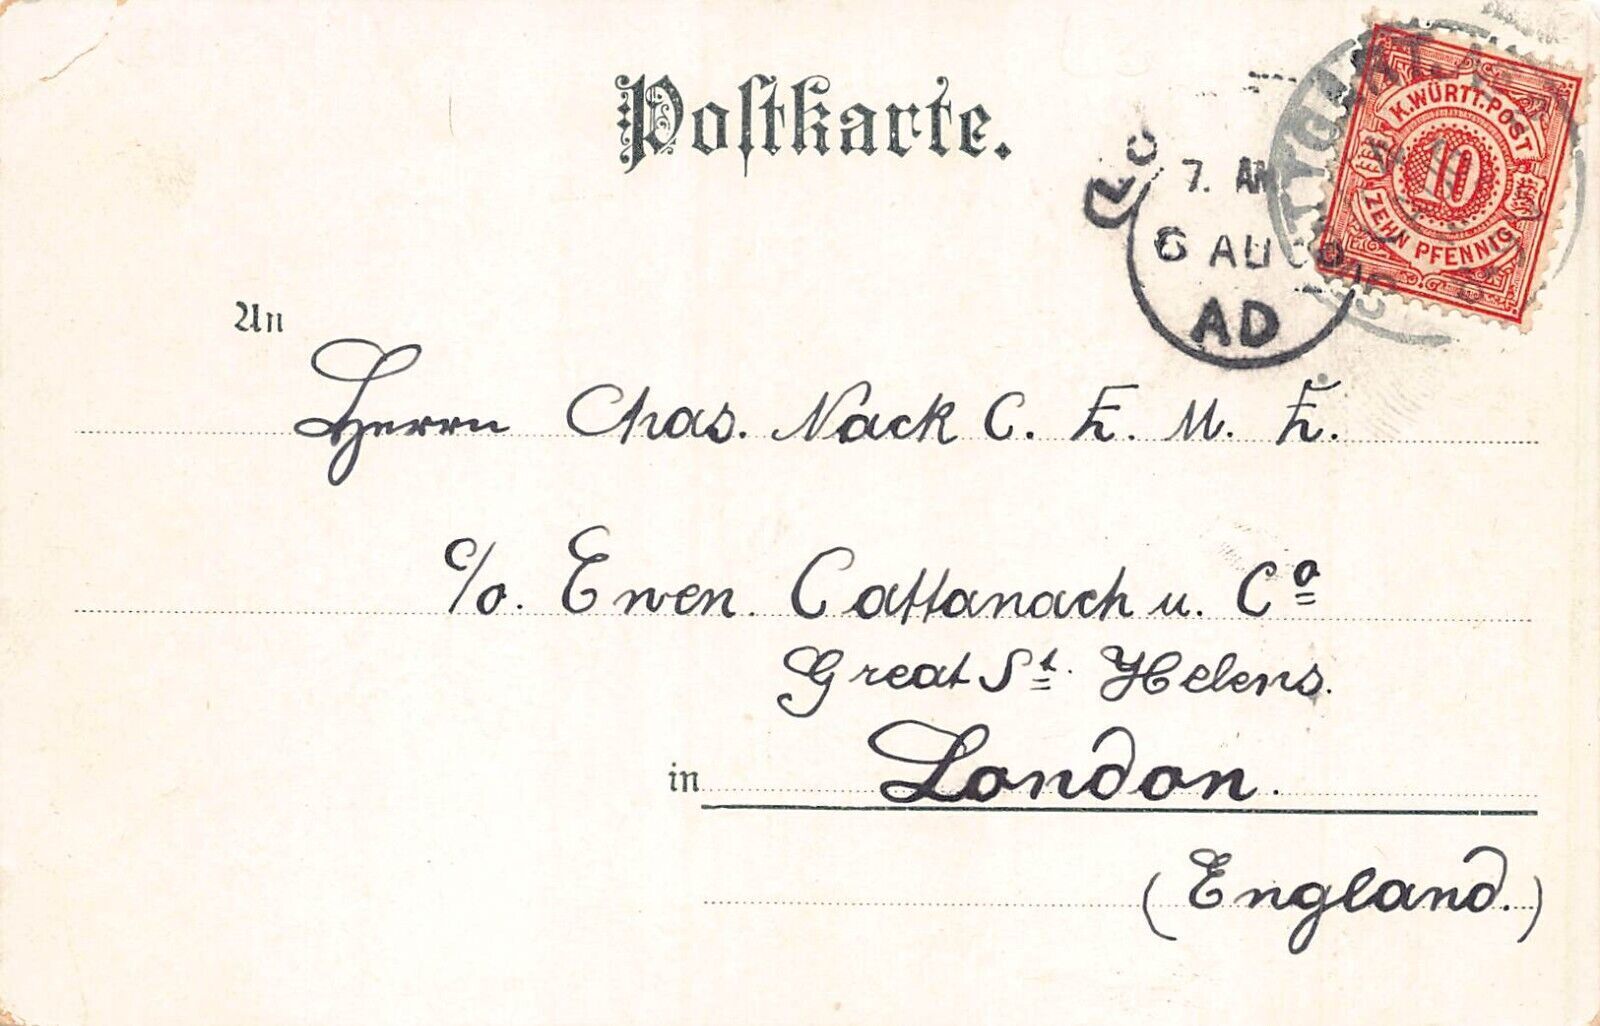 Postkarte.
K. WÜRTT. POST
10
ZEHN PFENNIG
7. AM
6 AU
AD
An
Herrn Chas. Nack C. E. M. E.
c/o. Ewen. Cattanach u. Co
Great St. Helens.
in London.
(England.)